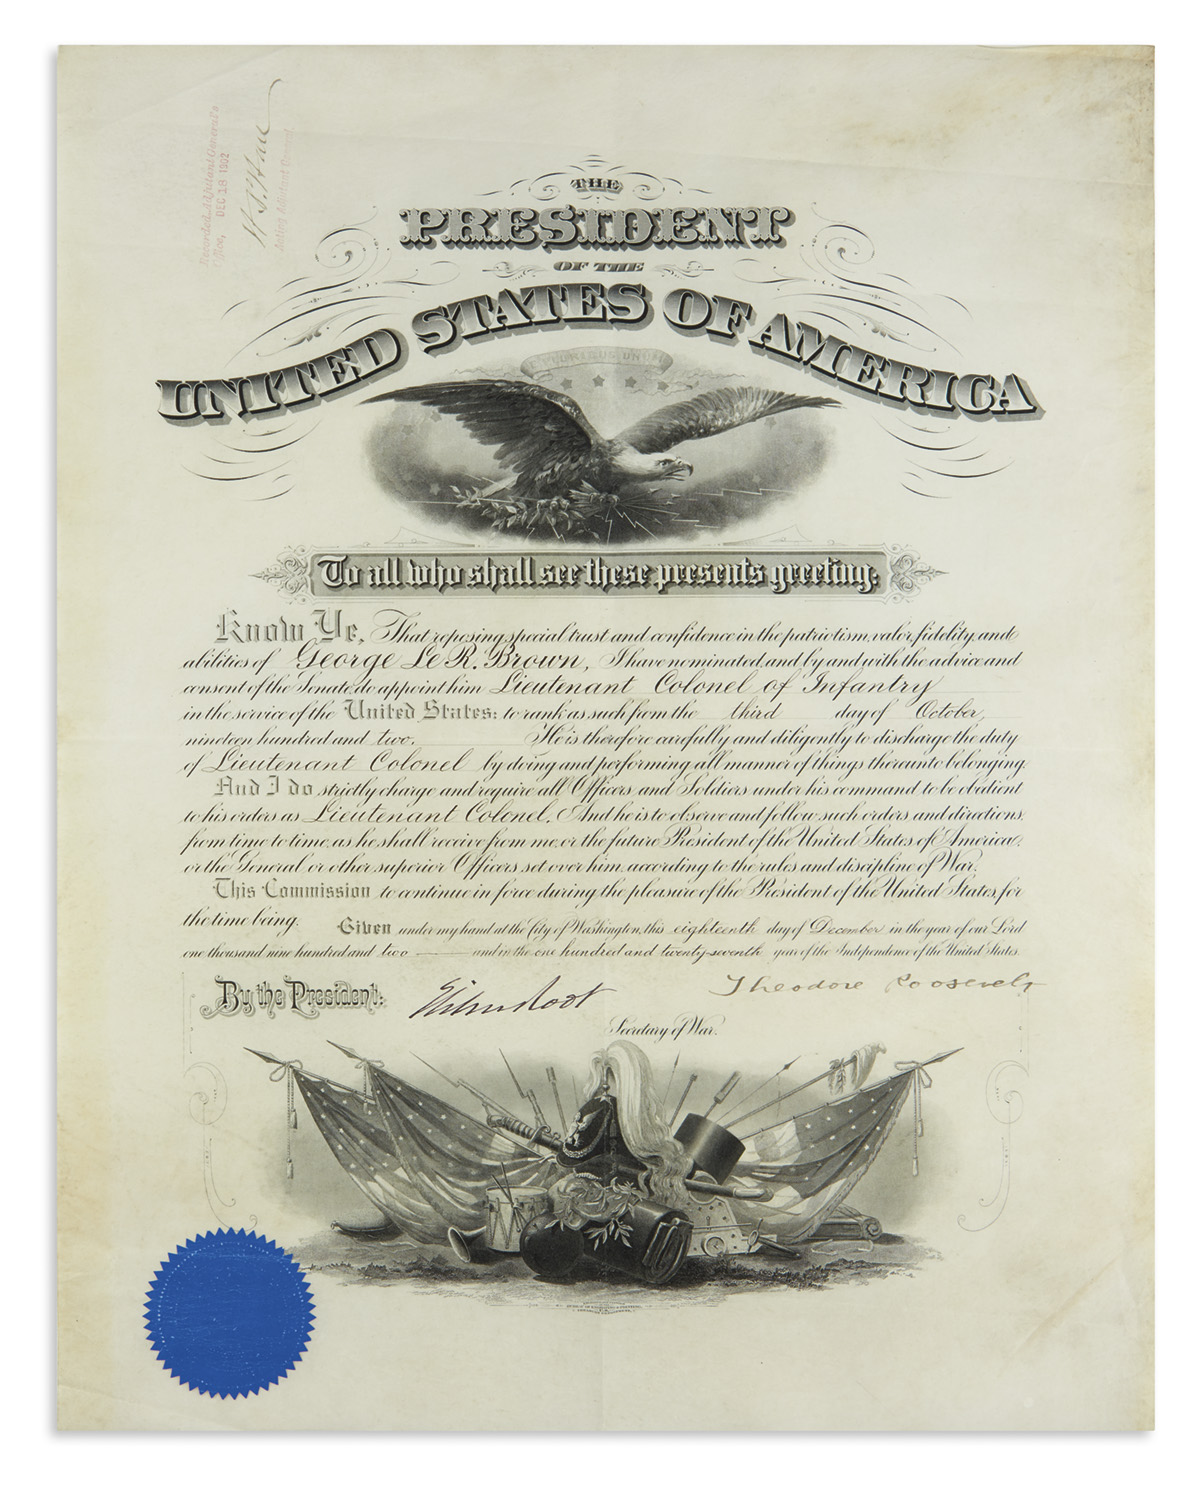 Recorded Adjutant General's
Office, DEC 18 1902
Acting Adjutant General
THE
PRESIDENT
OF THE
UNITED STATES OF AMERICA
E PLURIBUS UNUM
To all who shall see these presents greeting:
Know Ye, That reposing special trust and confidence in the patriotism, valor, fidelity, and
abilities of George Le R. Brown, I have nominated, and by and with the advice and
consent of the Senate, do appoint him Lieutenant Colonel of Infantry
in the service of the United States: to rank as such from the third day of October,
nineteen hundred and two. He is therefore carefully and diligently to discharge the duty
of Lieutenant Colonel by doing and performing all manner of things thereunto belonging.
And I do strictly charge and require all Officers and Soldiers under his command to be obedient
to his orders as Lieutenant Colonel. And he is to observe and follow such orders and directions,
from time to time, as he shall receive from me, or the future President of the United States of America,
or the General or other superior Officers set over him, according to the rules and discipline of War.
This Commission to continue in force during the pleasure of the President of the United States, for
the time being. Given under my hand at the City of Washington, this eighteenth day of December in the year of our Lord
one thousand nine hundred and two and in the one hundred and twenty-seventh year of the Independence of the United States.
By the President: Elihu Root Theodore Roosevelt
Secretary of War.